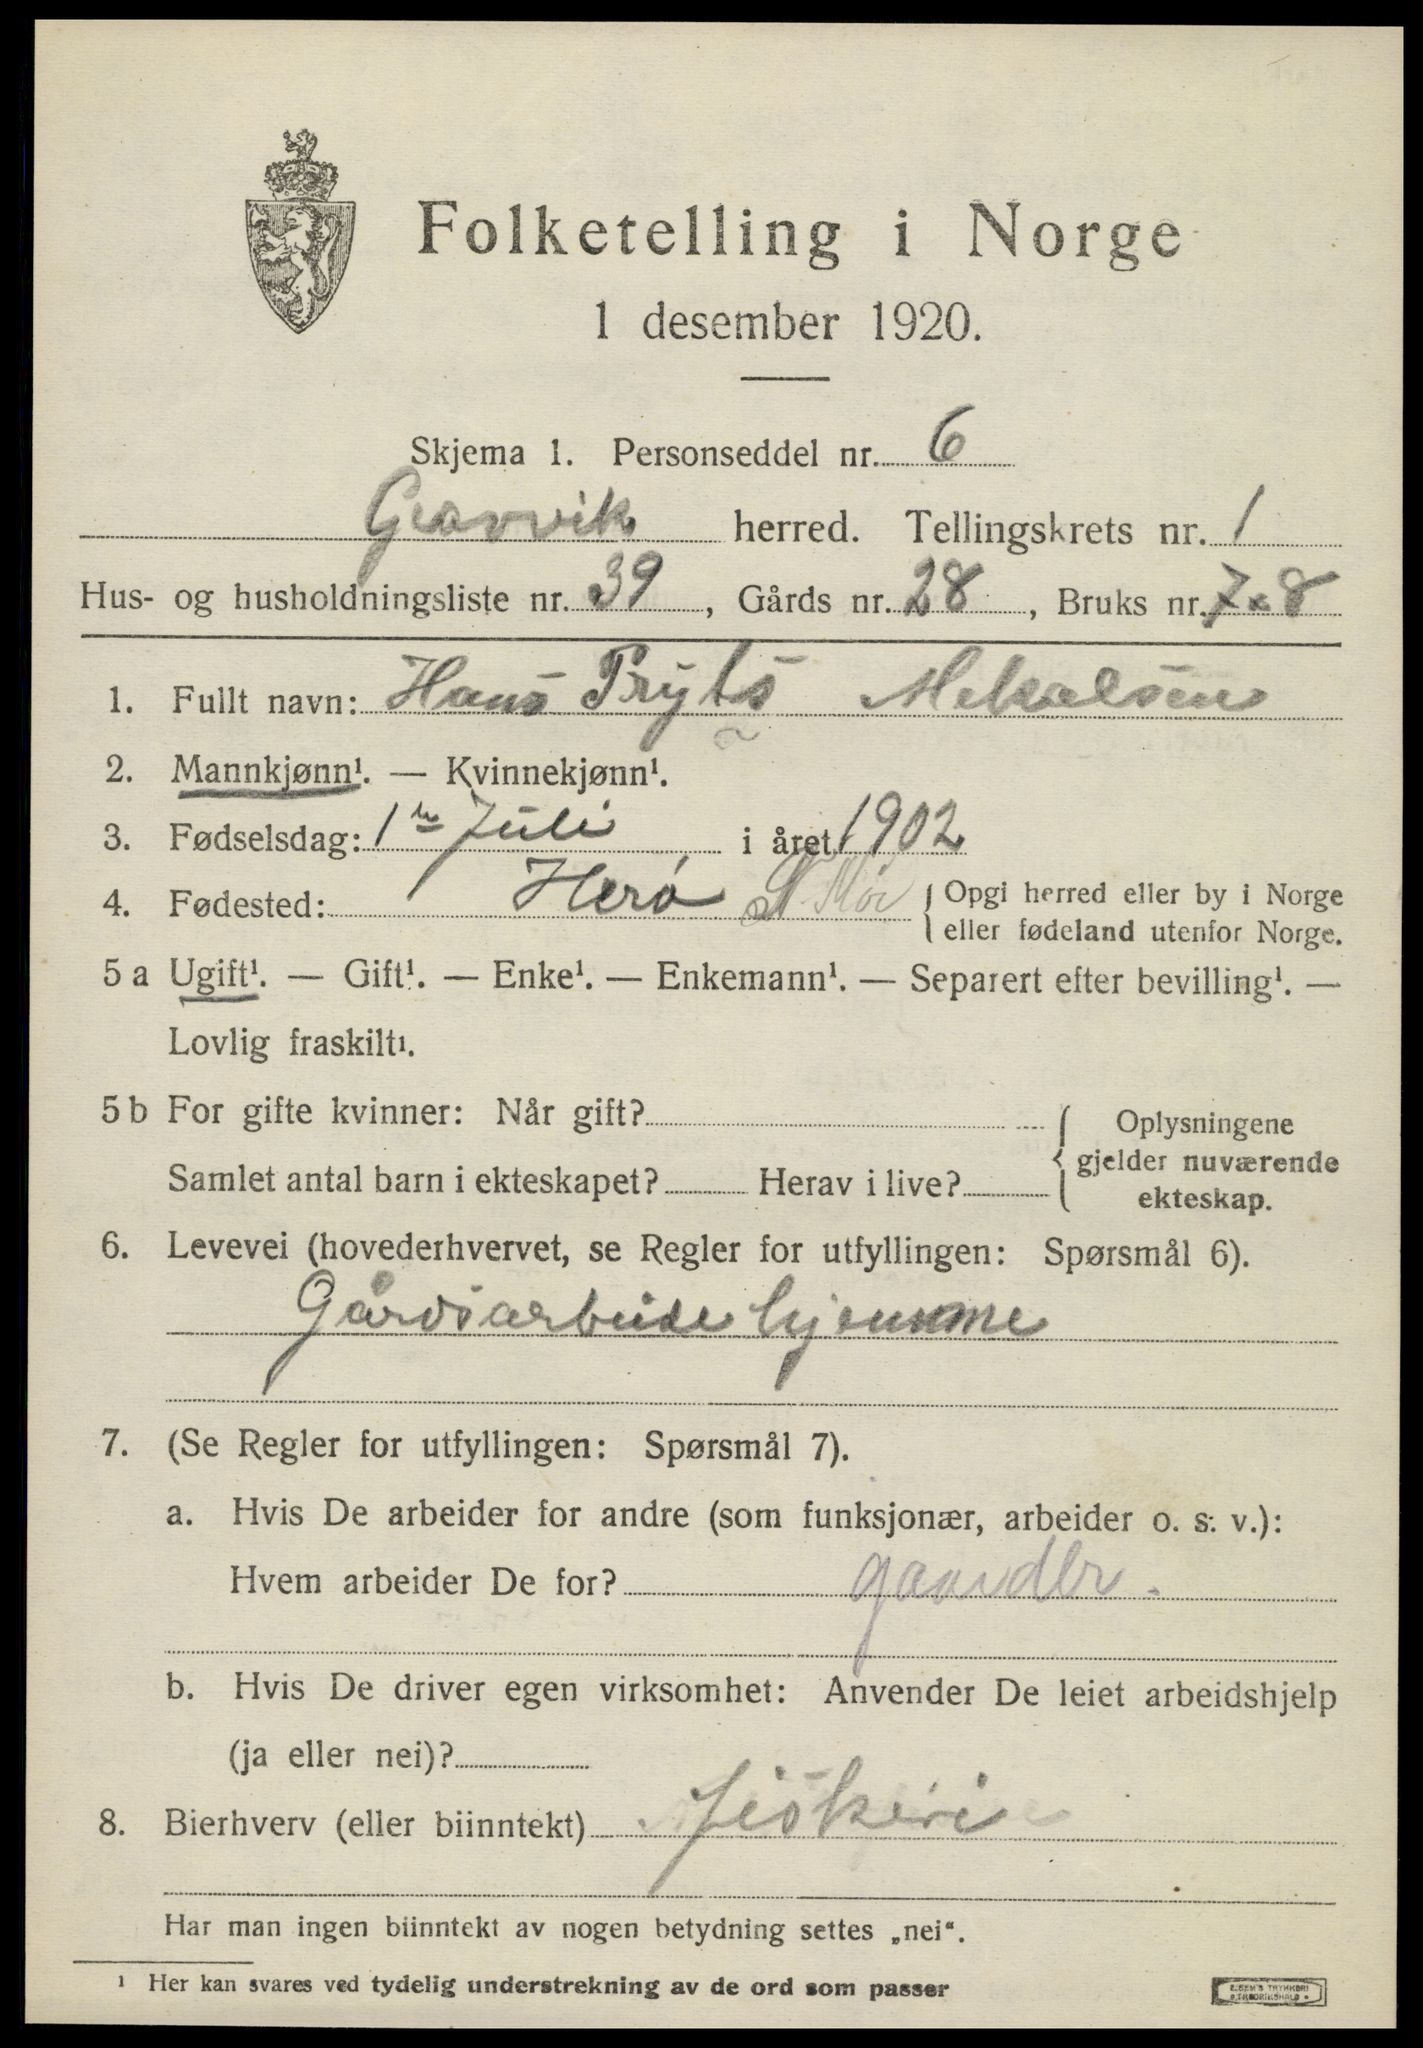 Folketelling i Norge
1 desember 1920.
Skjema 1. Personseddel nr. 6
Gravvik herred. Tellingskrets nr. 1
Hus- og husholdningsliste nr. 39, Gårds nr. 28, Bruks nr. 7 x 8
1. Fullt navn: Hans Pryts Mekalsen
2. Mannkjønn¹. — Kvinnekjønn¹.
3. Fødselsdag: 1ste Juli i året 1902
4. Fødested: Herø { Opgi herred eller by i Norge
eller fødeland utenfor Norge.
5 a Ugift¹. — Gift¹. — Enke¹. — Enkemann¹. — Separert efter bevilling¹. —
Lovlig fraskilt¹.
5 b For gifte kvinner: Når gift? { Oplysningene
gjelder nuværende
Samlet antal barn i ekteskapet? Herav i live?
ekteskap.
6. Levevei (hovederhvervet, se Regler for utfyllingen: Spørsmål 6).
Gårdsarbeide hjemme
7. (Se Regler for utfyllingen: Spørsmål 7).
a. Hvis De arbeider for andre (som funksjonær, arbeider o. s. v.):
Hvem arbeider De for?
b. Hvis De driver egen virksomhet: Anvender De leiet arbeidshjelp
(ja eller nei)?
8. Bierhverv (eller biinntekt) Fiskeri
Har man ingen biinntekt av nogen betydning settes „nei“.
¹ Her kan svares ved tydelig understrekning av de ord som passer